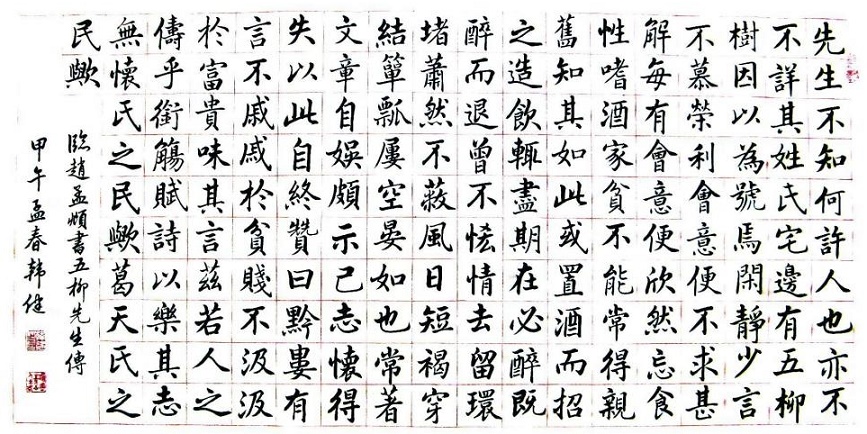 先生不知何許人也亦不
不詳其姓氏宅邊有五柳
樹因以為號焉閑靜少言
不慕榮利會意便不求甚
解每有會意便欣然忘食
性嗜酒家貧不能常得親
舊知其如此或置酒而招
之造飲輒盡期在必醉既
醉而退曾不恡情去留環
堵蕭然不蔽風日短褐穿
結簞瓢屢空晏如也常著
文章自娛頗示己志懷得
失以此自終贊曰黔婁有
言不戚戚於貧賤不汲汲
於富貴味其言茲若人之
儔乎銜觴賦詩以樂其志
無懷氏之民歟葛天氏之
民歟
臨趙孟頫書五柳先生傳
甲午孟春韓